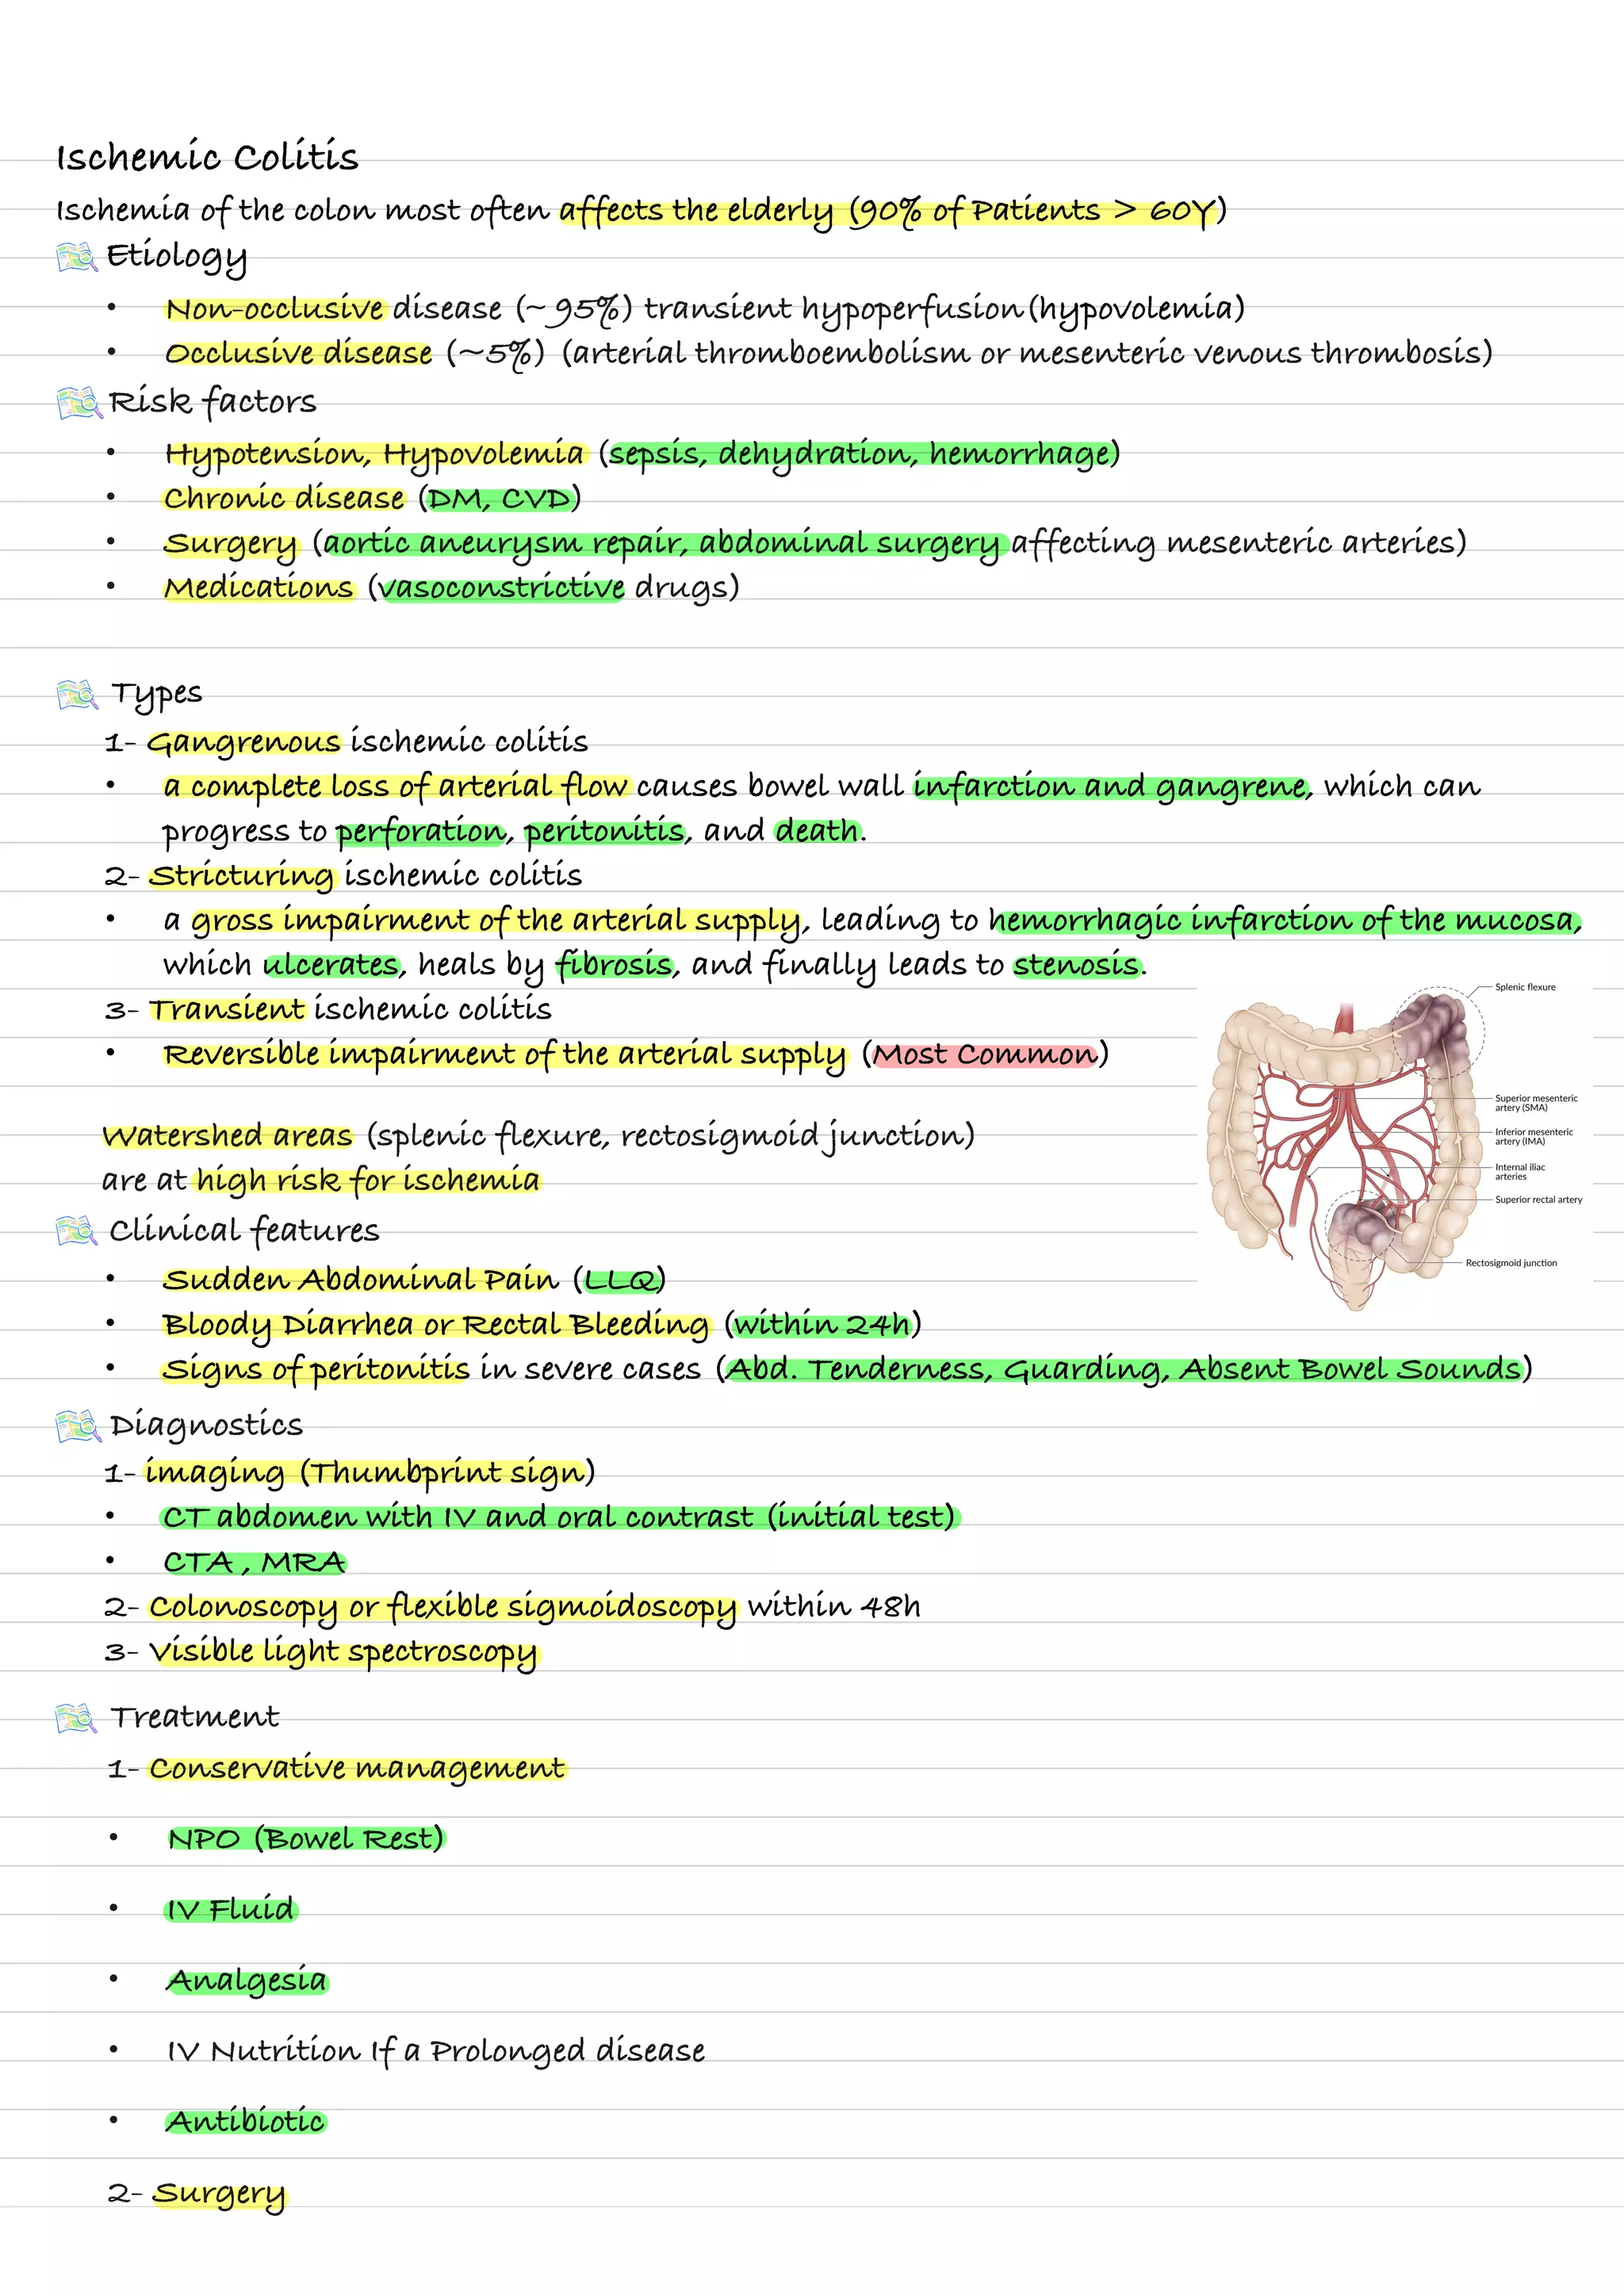 Ischemic Colitis
Ischemia of the colon most often affects the elderly (90% of Patients > 60Y)
Etiology
• Non-occlusive disease (~95%) transient hypoperfusion(hypovolemia)
• Occlusive disease (~5%) (arterial thromboembolism or mesenteric venous thrombosis)
Risk factors
• Hypotension, Hypovolemia (sepsis, dehydration, hemorrhage)
• Chronic disease (DM, CVD)
• Surgery (aortic aneurysm repair, abdominal surgery affecting mesenteric arteries)
• Medications (vasoconstrictive drugs)
Types
1- Gangrenous ischemic colitis
• a complete loss of arterial flow causes bowel wall infarction and gangrene, which can
progress to perforation, peritonitis, and death.
2- Stricturing ischemic colitis
• a gross impairment of the arterial supply, leading to hemorrhagic infarction of the mucosa,
which ulcerates, heals by fibrosis, and finally leads to stenosis.
3- Transient ischemic colitis
• Reversible impairment of the arterial supply (Most Common)
Watershed areas (splenic flexure, rectosigmoid junction)
are at high risk for ischemia
Splenic flexure
Superior mesenteric
artery (SMA)
Inferior mesenteric
artery (IMA)
Internal iliac
arteries
Superior rectal artery
Rectosigmoid junction
Clinical features
• Sudden Abdominal Pain (LLQ)
• Bloody Diarrhea or Rectal Bleeding (within 24h)
• Signs of peritonitis in severe cases (Abd. Tenderness, Guarding, Absent Bowel Sounds)
Diagnostics
1- imaging (Thumbprint sign)
• CT abdomen with IV and oral contrast (initial test)
• CTA , MRA
2- Colonoscopy or flexible sigmoidoscopy within 48h
3- Visible light spectroscopy
Treatment
1- Conservative management
• NPO (Bowel Rest)
• IV Fluid
• Analgesia
• IV Nutrition If a Prolonged disease
• Antibiotic
2- Surgery